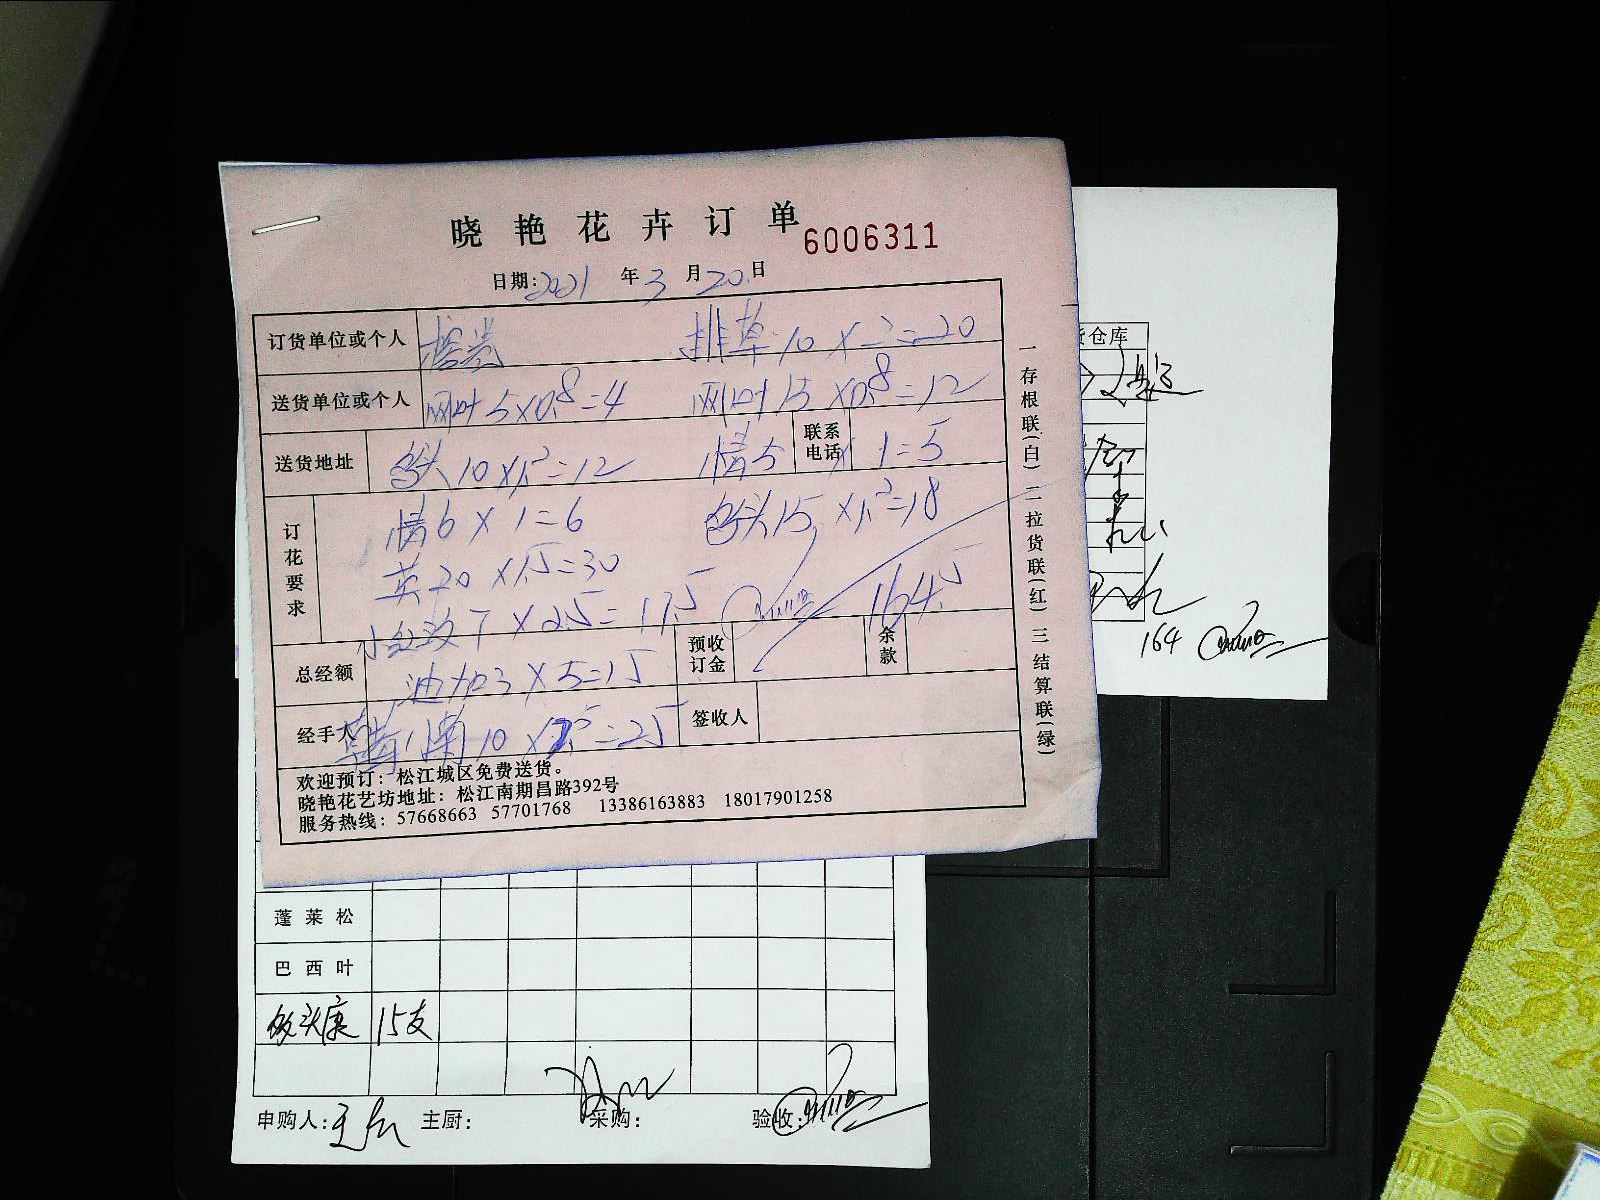 晓艳花卉订单 6006311
日期:2021年3月20日
订货单位或个人 排草10×2=20
送货单位或个人 网叶5×0.8=4 网叶15×0.8=12
送货地址 包头10×1.2=12 情5 联系电话 × 1=5
订花要求 情6×1=6 包头15×1.2=18
英20×1.5=30
小红玫7×2.5=17.5 164.5
总经额 油加3×5=15 预收订金 余款
经手人 10×2.5=25 签收人
欢迎预订:松江城区免费送货。
晓艳花艺坊地址:松江南期昌路392号
服务热线:57668663 57701768 13386163883 18017901258
一存根联(白) 二拉货联(红) 三结算联(绿)
货仓库
164
蓬莱松
巴西叶
15支
申购人: 主厨: 采购: 验收: